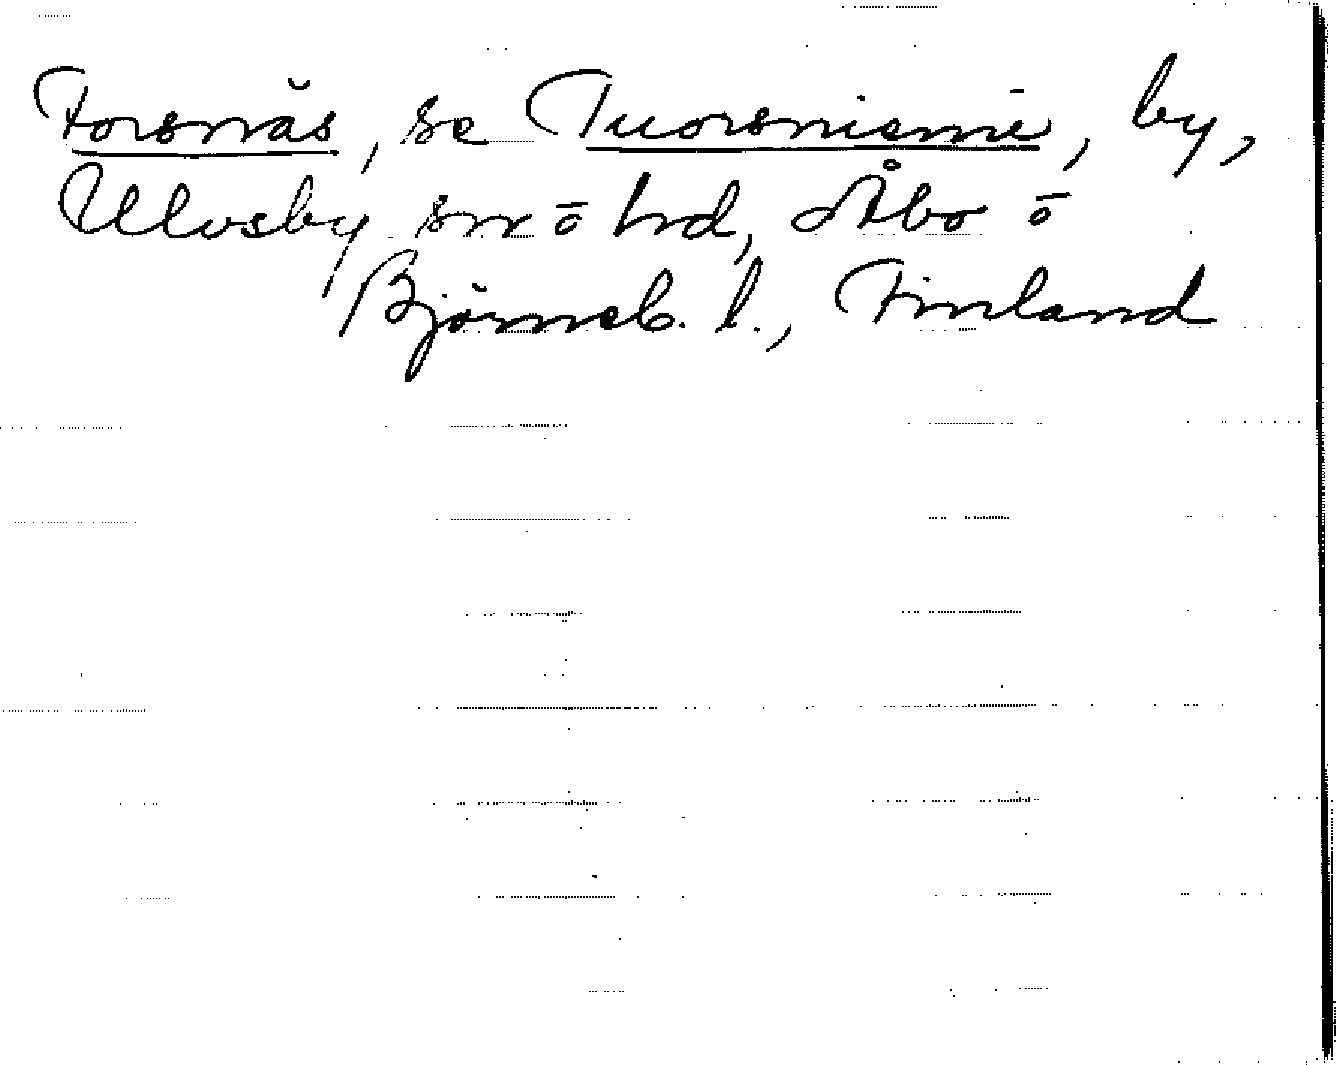 Forsnäs, se Tuorsniemi, by,
Ulvsby sn o hd, Åbo o
Björneb. l., Finland